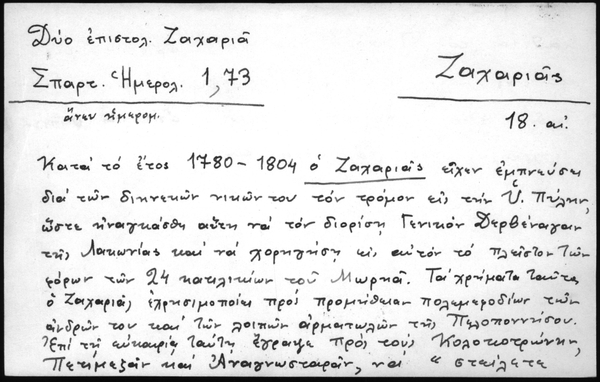 Δύο ἐπιστολ. Ζαχαριᾶ
Σπαρτ. Ἡμερολ. 1,73
ἄνευ ἡμερομ.
Ζαχαριᾶς
18. αἰ.
Κατά τό ἔτος 1780-1804 ὁ Ζαχαριᾶς εἶχεν ἐμπνεύσει
διά τῶν διηνεκῶν νικῶν του τόν τρόμον εἰς τήν Ὑ. Πύλην,
ὥστε ἠναγκάσθη αὕτη νά τόν διορίσῃ Γενικόν Δερβέναγαν
τῆς Λακωνίας καί νά χορηγήσῃ εἰς αὐτόν τό πλεῖστον τῶν
φόρων τῶν 24 κατιλικίων τοῦ Μωρηᾶ. Τά χρήματα ταῦτα
ὁ Ζαχαριᾶς ἐχρησιμοποίει πρός προμήθειαν πολεμεφοδίων τῶν
ἀνδρῶν του καί τῶν λοιπῶν ἁρματωλῶν τῆς Πελοποννήσου.
Ἐπί τῇ εὐκαιρίᾳ ταύτῃ ἔγραψε πρός τούς Κολοκοτρώνην,
Πετιμεζᾶν καί Ἀναγνωσταρᾶν, νά " στείλετε